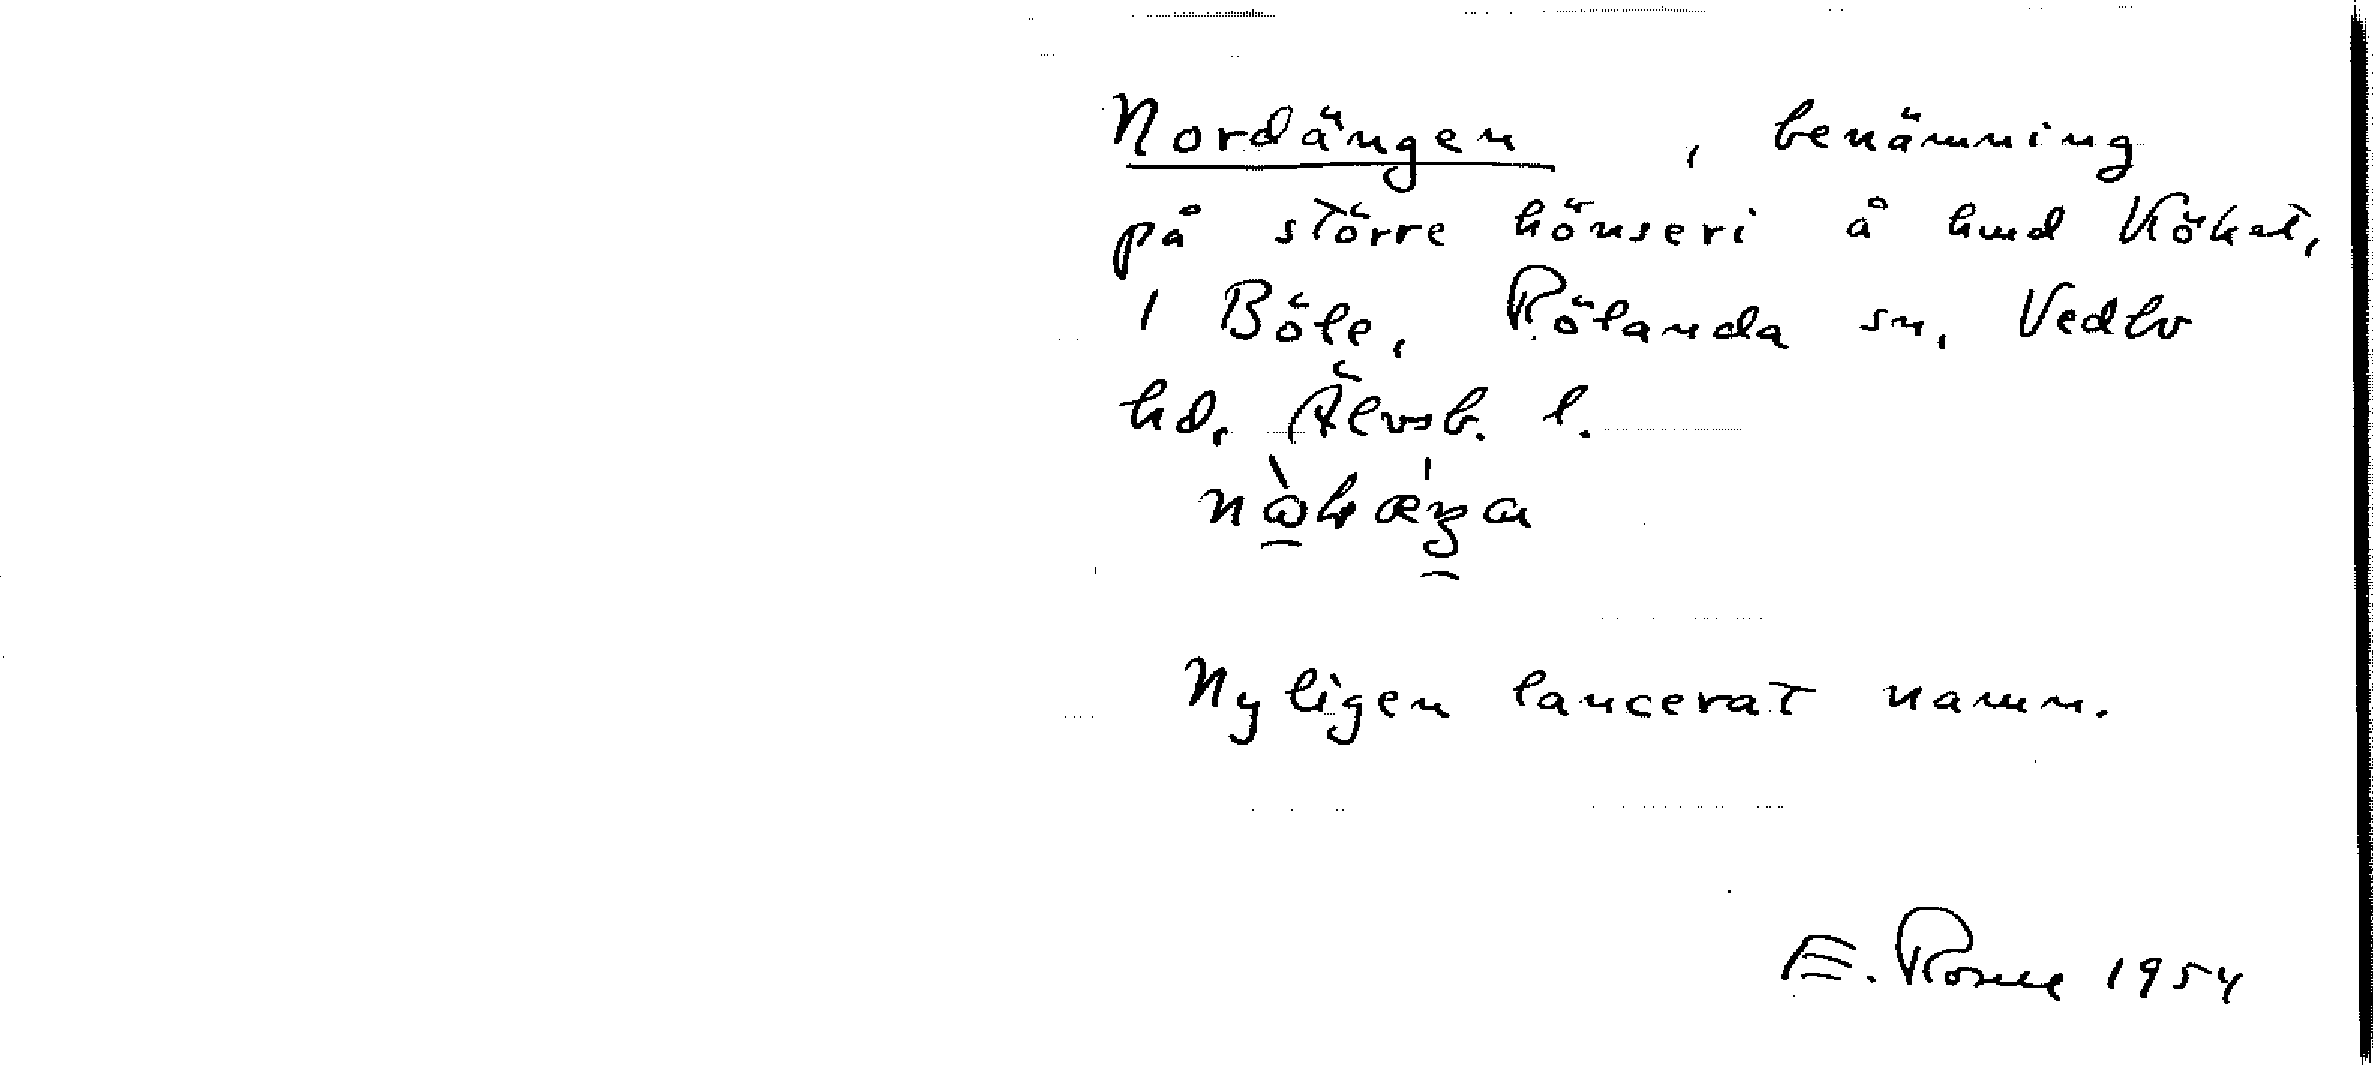 Nordängen, benämning
på större hönseri å hmd Köket,
1 Böle, Rölanda sn, Vedbo
hd, Älvsb. l.
Nyligen lancerat namn.
E. Rosme 1954